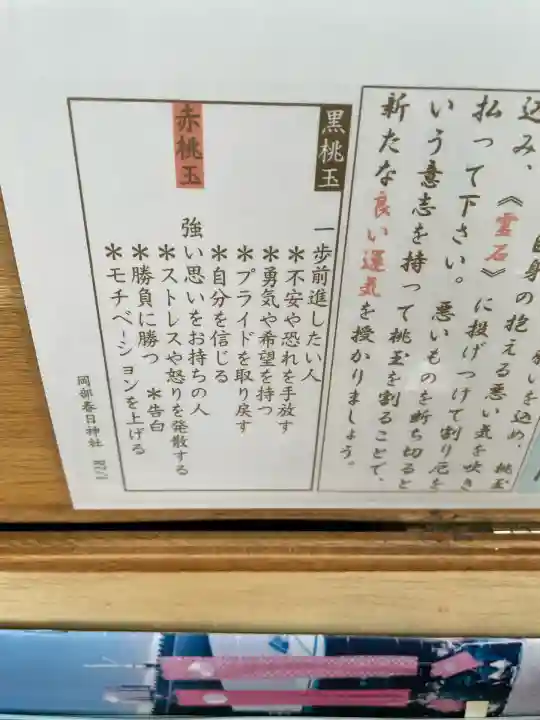 込み、
払って下さい。
《霊石》に投げつけて割り厄を
いう意志を持って桃玉を割ることで、
新たな良い運気を授かりましょう。
黒桃玉
一歩前進したい人
＊不安や恐れを手放す
＊勇気や希望を持つ
＊プライドを取り戻す
＊自分を信じる
赤桃玉
強い思いをお持ちの人
＊ストレスや怒りを発散する
＊勝負に勝つ ＊告白
＊モチベーションを上げる
岡部春日神社